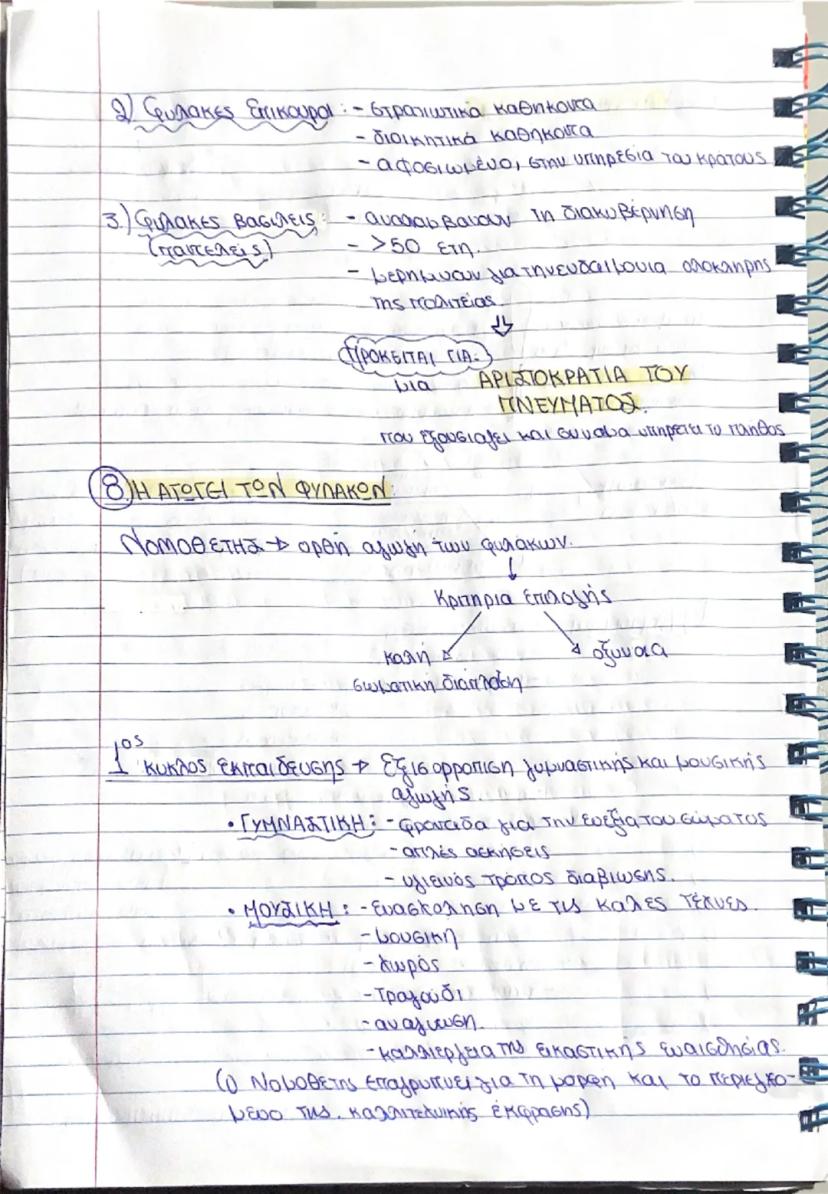 2) Φυλακες Επικουροι: - στρατιωτικά καθηκοντα
- διοικητικά καθηκοντα
- αφοσιωμένοι στην υπηρεσία του κράτους
3.) Φυλακες βασιλεις: - αναλαμβανουν τη διακυβέρνηση
(παντελεις) - >50 ετη.
- μεριμνουν για την ευδαιμονια ολοκληρης
της πολιτείας
ΠΡΟΚΕΙΤΑΙ ΓΙΑ:
μια ΑΡΙΣΤΟΚΡΑΤΙΑ ΤΟΥ
ΠΝΕΥΜΑΤΟΣ.
που εξουσιαζει και συναμα υπηρετει το πληθος
8. Η ΑΓΩΓΕΙ ΤΩΝ ΦΥΛΑΚΩΝ:
ΝΟΜΟΘΕΤΗΣ → ορθή αγωγή των φυλακων.
↓
Κριτηρια επιλογής
καλή οξυνοια
σωματική διάπλαση
1ος κυκλος εκπαιδευσης → Εξισορροπιση γυμναστικής και μουσικής
αγωγής.
• ΓΥΜΝΑΣΤΙΚΗ: - φροντιδα για την ευεξια του σώματος
- απλές ασκήσεις
- υγιεινός τρόπος διαβιωσης.
• ΜΟΥΣΙΚΗ: - Ενασχοληση με τις καλες τέχνες.
- μουσικη
- χωρός
- Τραγούδι
- αναγνωση.
- καλλιεργεια της εικαστικής ευαισθησίας.
(ο Νομοθετης επαγρυπνει για τη μορφη και το περιεχο-
μενο της καλλιτεχνικής έκφρασης)